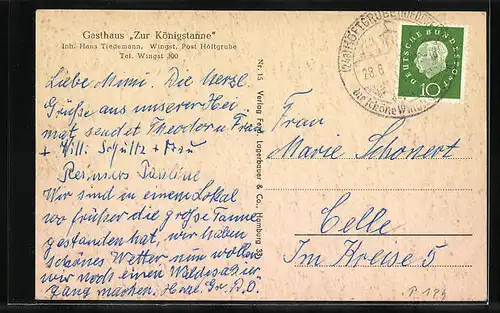 Gasthaus „Zur Königstanne"
Inh. Hans Tiedemann, Wingst, Post Höftgrube
Tel. Wingst 300
Liebe Mimi. Die herzl.
Grüße aus unserer Hei
mat sendet Theodor u. Frau
+ Willi Schültz + Frau
Reimers
Wir sind in einem Lokal
wo früher die große Tanne
gestanden hat, wir haben
schönes Wetter nun wollen
wir noch einen Waldspazier
gang machen. Herzl. Gr. D.O.
Nr. 15 Verlag Ferd. Lagerbauer & Co., Hamburg 39
HÖFTGRUBE
28.8.
die schöne Wingst
DEUTSCHE BUNDESPOST
10
Frau
Marie Schonert
Celle
Im Kreise 5
P 184